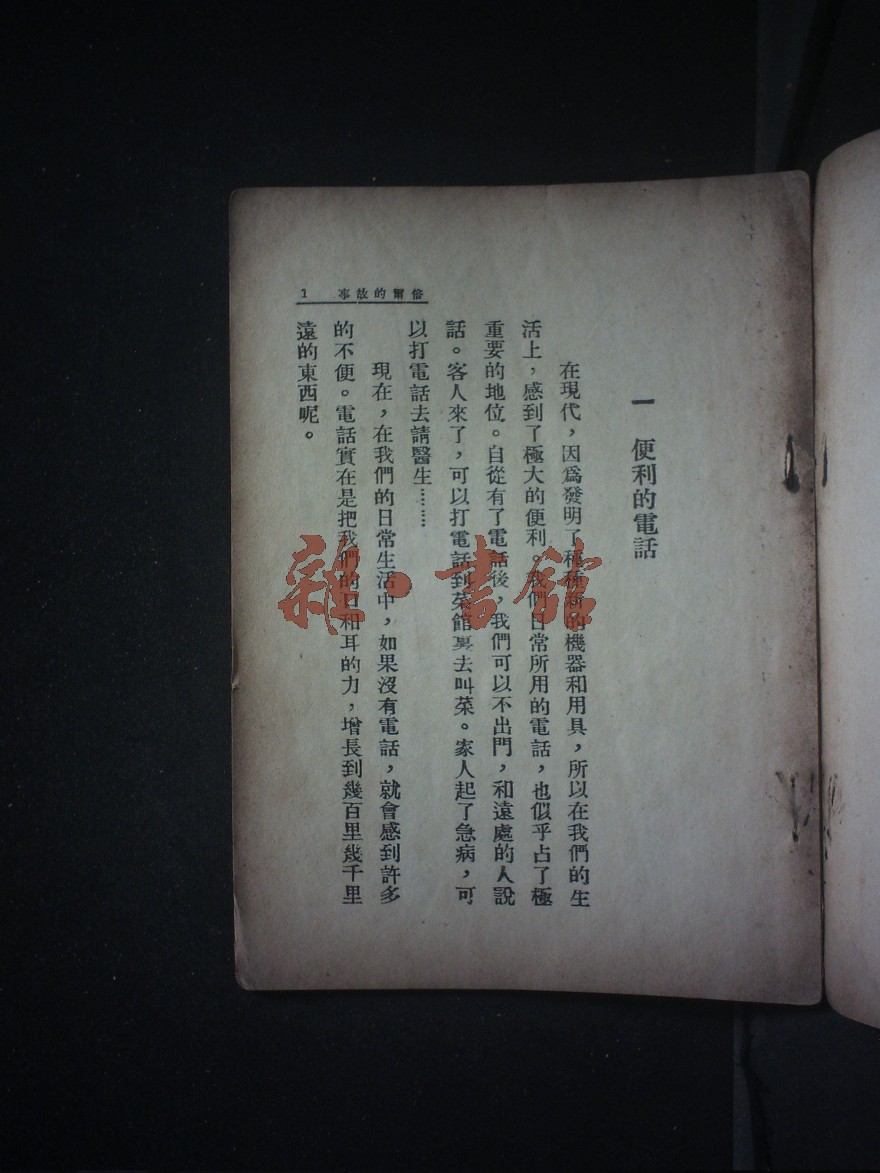 一 便利的電話
在現代，因爲發明了種種新的機器和用具，所以在我們的生
活上，感到了極大的便利。我們日常所用的電話，也似乎占了極
重要的地位。自從有了電話後，我們可以不出門，和遠處的人說
話。客人來了，可以打電話到菜館裏去叫菜。家人起了急病，可
以打電話去請醫生………
現在，在我們的日常生活中，如果沒有電話，就會感到許多
的不便。電話實在是把我們的口和耳的力，增長到幾百里幾千里
遠的東西呢。
倍爾的故事 1
雜·書館